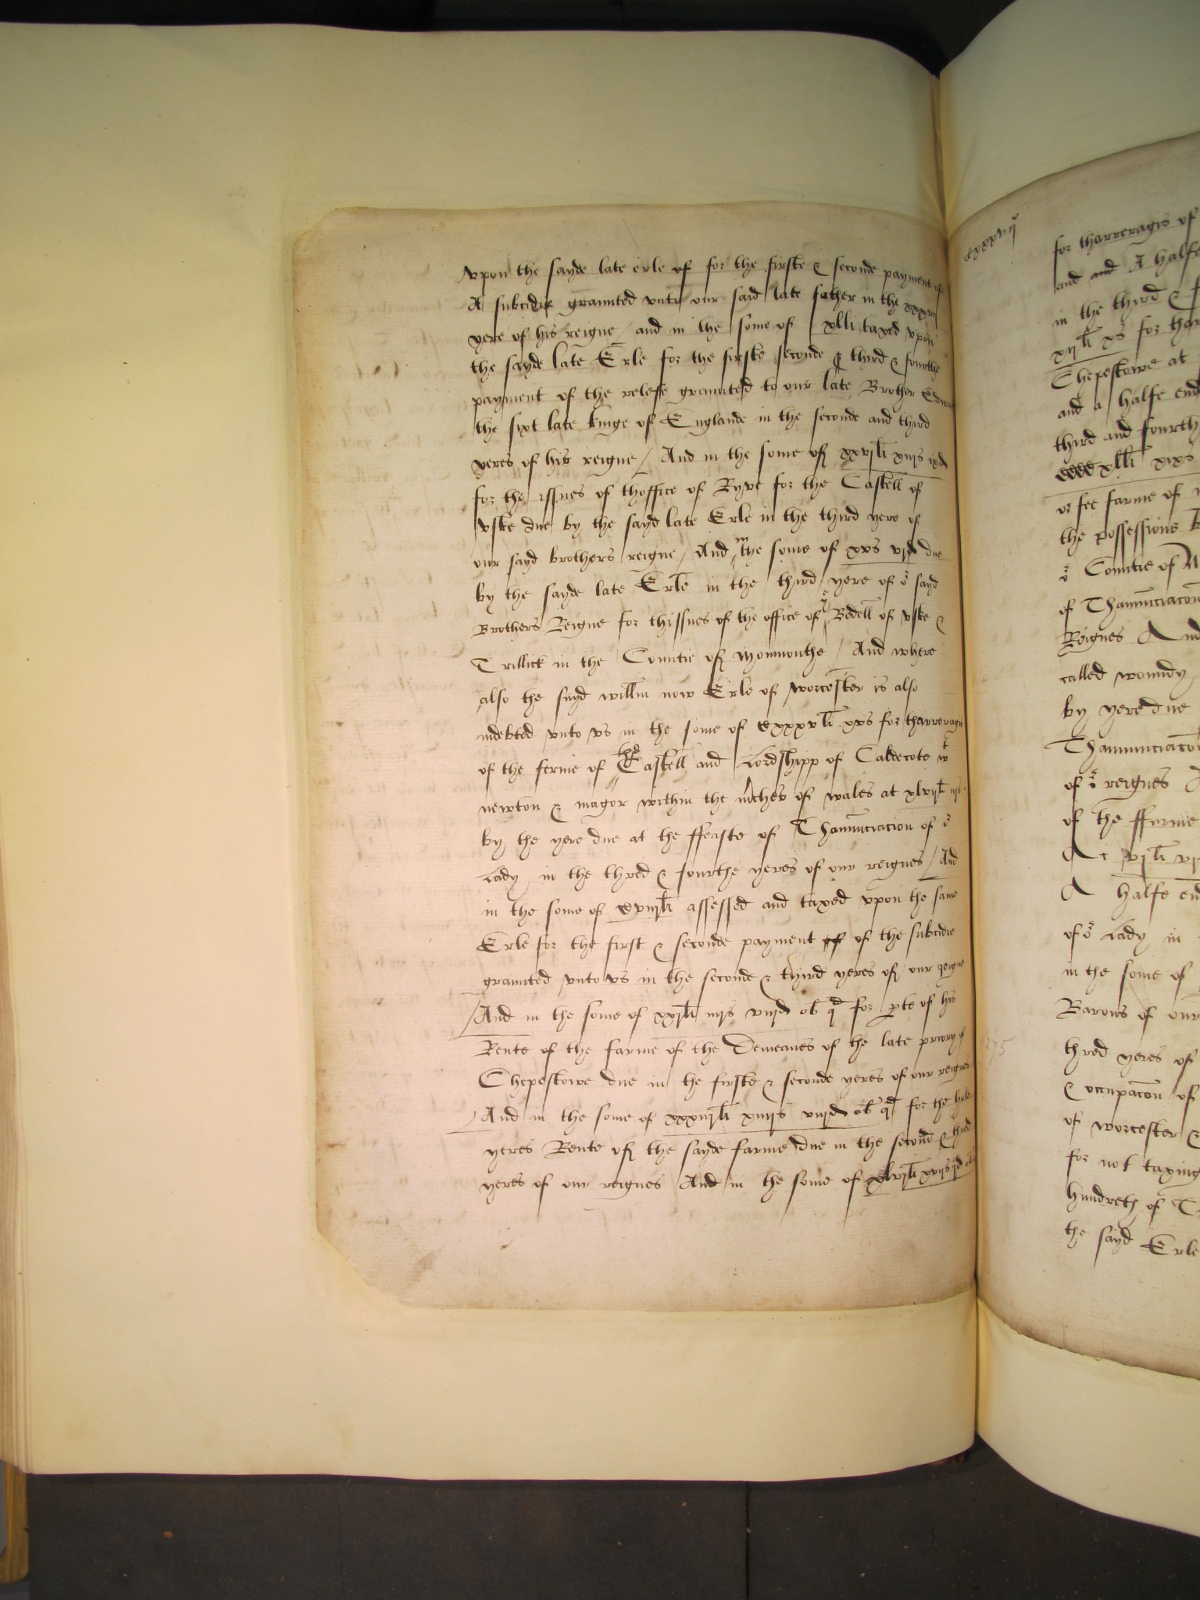 vpon the sayde late erle of for the firste & seconde payment of
A subcidie graunted vnto our said late father in the xxxvij
yere of his reigne / and in the some of xlli taxed vpon
the sayde late Erle for the firste seconde & third & fourthe
payment of the relesse graunted to our late Brother Edward
the sixt late kinge of Englande in the seconde and third
yeres of his reigne / And in the some of xxvjli xiijs ixd
for the issues of thoffice of Ryve for the Castell of
vske due by the sayd late Erle in the third yere of
our sayd brothers reigne / And in the some of xxs vjd due
by the sayde late Erle in the third yere of or sayd
Brothers Reigne for thissues of the office of ye Bedell of vske &
Trillick in the Countie of Monmouthe / And where
also the sayd willm now Erle of worcester is also
indebted vnto vs in the some of cxxxvli xvs for tharreragis
of the ferme of the Castell and Lordshipp of Caldecote wt
newton & magor within the mches of wales at xlvijli
by the yere due at the ffeaste of Thannunciacion of or
Lady in the thred & fourthe yeres of our reignes / And
in the some of cviijli assessed and taxed vpon the same
Erle for the first & seconde payment of of the subcidie
graunted vnto vs in the seconde & third yeres of our reigne
/And in the some of xxjli iiijs viijd ob qd for pte of his
Rente of the farme of the Demeanes of the late priory of
Chepestowe due in the firste & seconde yeres of our reignes
/And in the some of xxxiijli xiiijs viijd ob qd for the hole
yeres Rente of the sayde farme due in the second & thred
yeres of our reignes And in the some of xlvijli xviijs

cxxxvij
for tharreragis of
and and A halfe
in the third &
xijli xs for thar
Chepestowe at
and a halfe end
third and fourth
xlli xixs
or fee farme of
the possessions
or Countie of
of Thannunciacon
Reignes And
called woundy
by yere due
Thannunciacon
of or reignes
of the fferme
At vjli
A halfe en
of or Lady in
in the some of
Barons of our
thred yeres of
& occupacon of
of worcester &
for not taxing
hundreth of
the sayd Erle